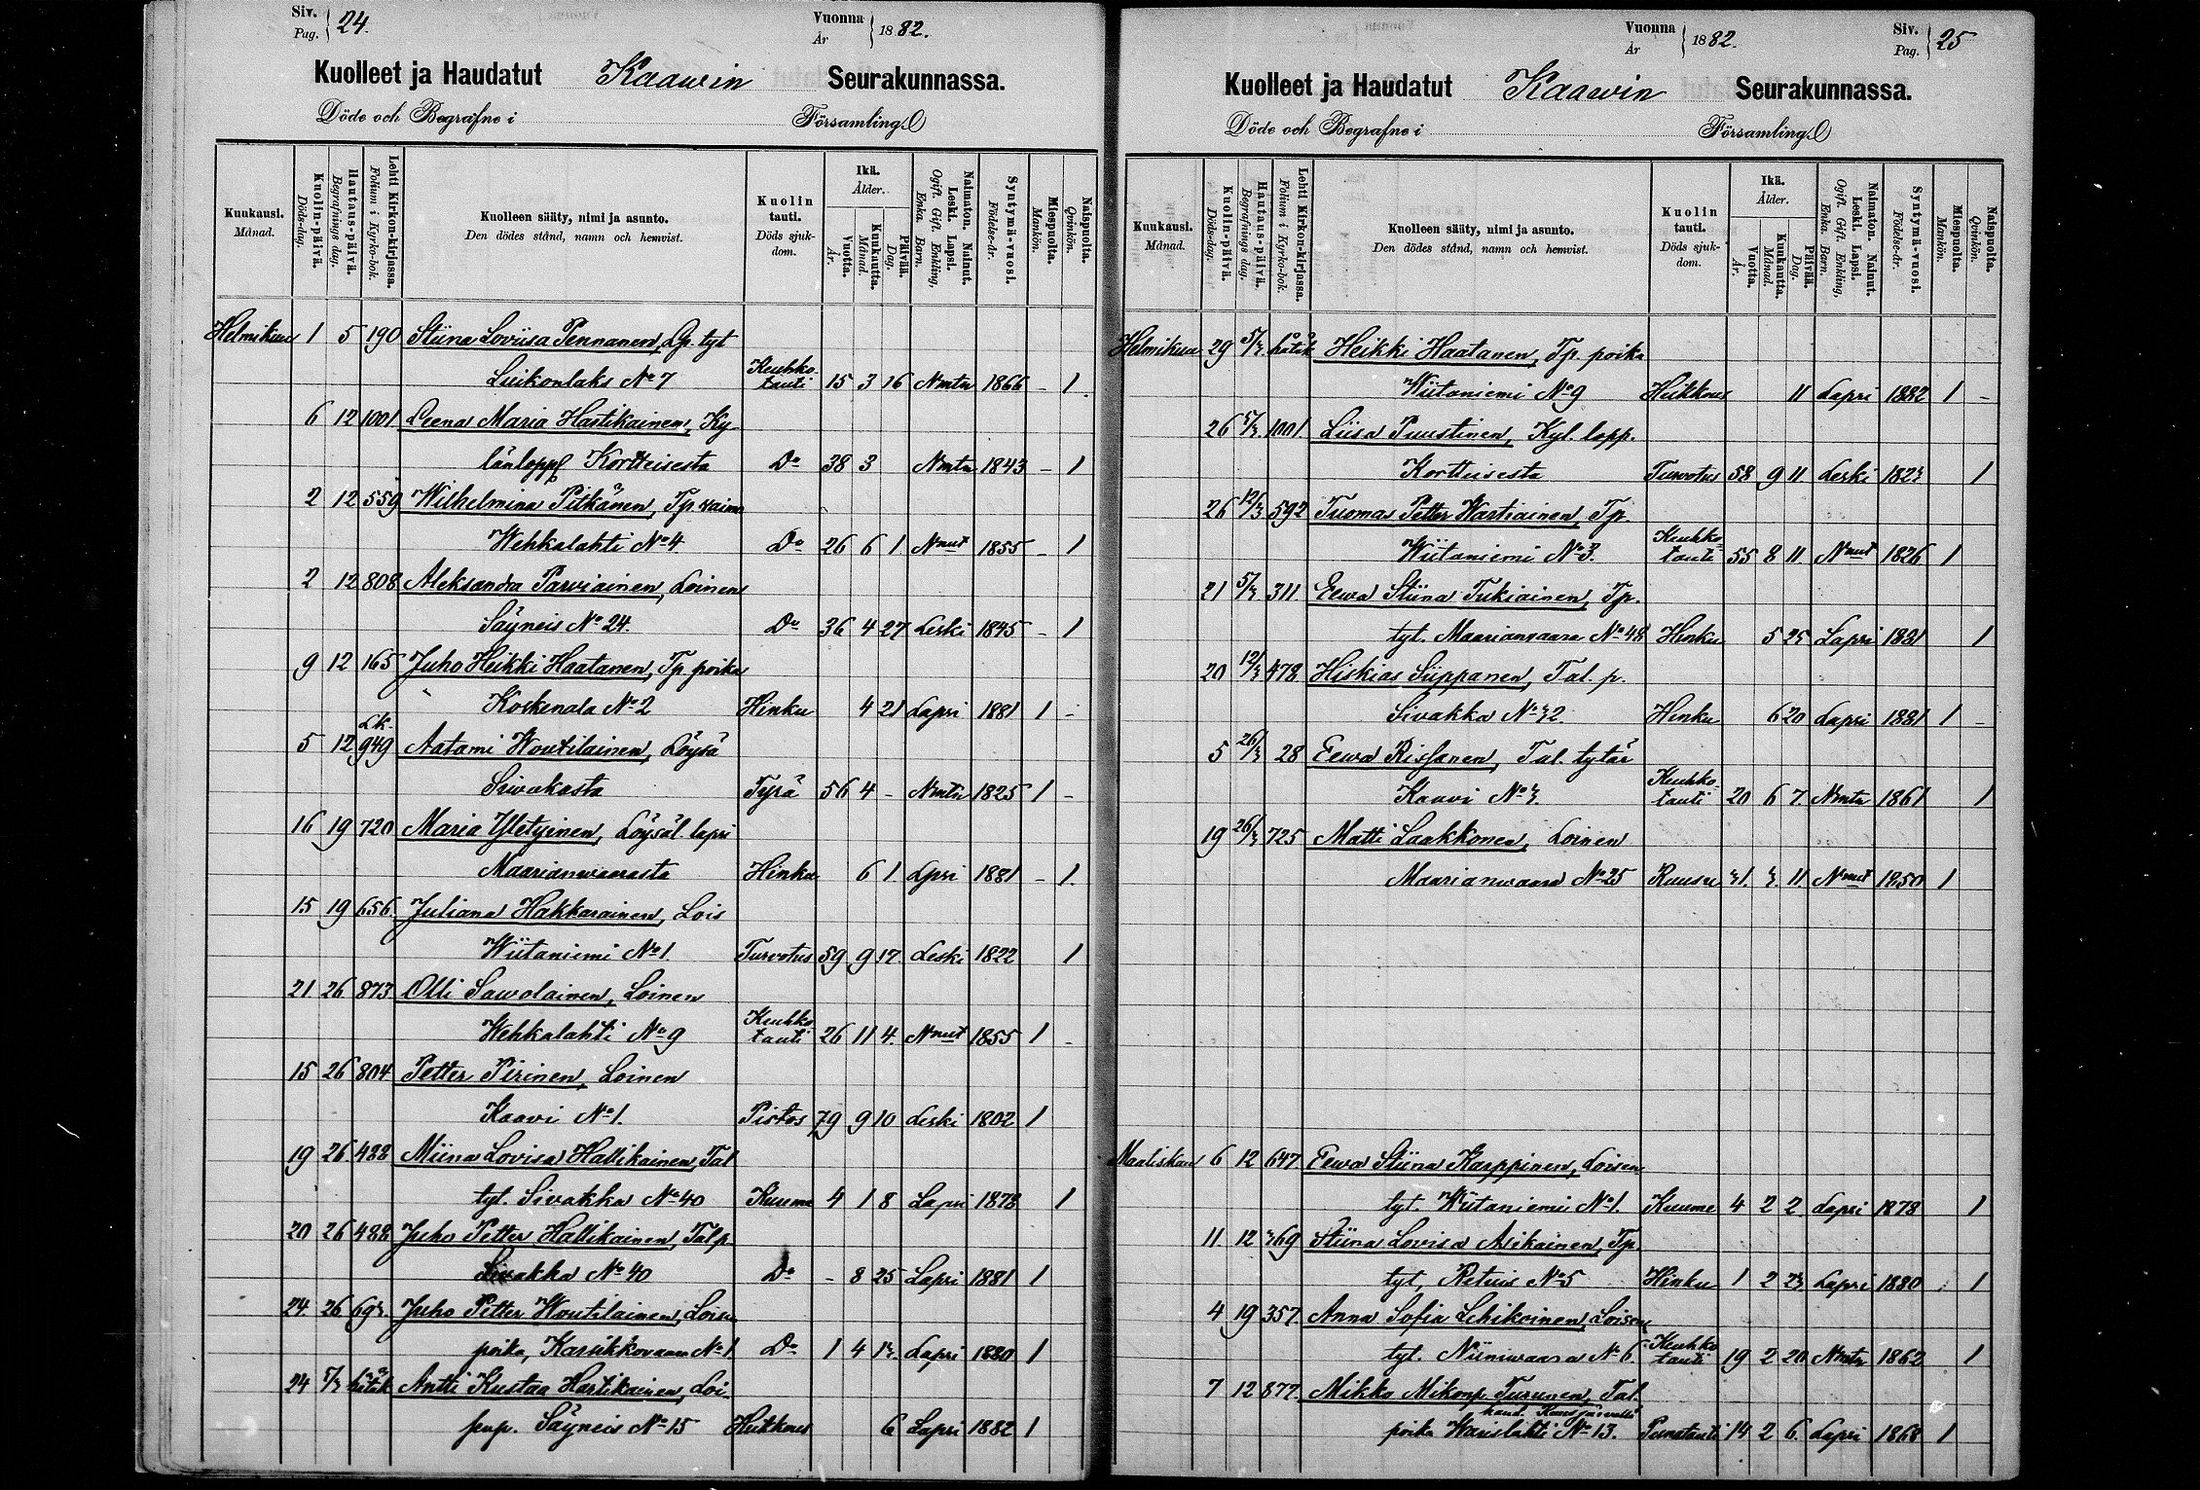 Siv. Pag. 24.
Vuonna År 1882.
Kuolleet ja Haudatut Kaawin Seurakunnassa.
Döde och Begrafne i Församling
Kuukausi. Månad.
Kuolin-päivä. Döds-dag.
Hautaus-päivä. Begrafnings dag.
Lehti Kirkon-kirjassa. Folium i Kyrko-bok.
Kuolleen sääty, nimi ja asunto. Den dödes stånd, namn och hemvist.
Kuolin tauti. Döds sjukdom.
Ikä. Ålder.
Vuotta. År.
Kuukautta. Månad.
Päivää. Dag.
Naimaton. Nainut. Leski. Lapsi. Ogift. Gift. Enkling, Enka. Barn.
Syntymä-vuosi. Födelse-år.
Miespuolta. Mankön.
Naispuolta. Qvinkön.
Helmikuu 1 5 190 Stiina Loviisa Pennanen, Lp. tyt
Luikonlaks No 7 Keuhkotauti 15 3 16 Nmtn 1866 - 1
6 12 1001 Leena Maria Hartikainen, Ky
länlopp Kortteisesta Do 38 3 Nmtn 1843 - 1
2 12 559 Wilhelmina Pitkänen, Tp. vaimo
Wehkalahti No 4 Do 26 6 1 Nnut 1855 - 1
2 12 808 Aleksandra Parviainen, Loinen
Säyneis No 24. Do 36 4 27 Leski 1845 - 1
9 12 165 Juho Heikki Haatanen, Tp poika
Koskenala No 2 Hinku 4 21 Lapsi 1881 1 -
5 12 Lk. 949 Aatami Woutilainen, Löysä
Sivakasta Tyrä 56 4 - Nmtn 1825 1 -
16 19 720 Maria Yletyinen, Löysäl. lapsi
Maarianwaarasta Hinku 6 1. Lpsi 1881 - 1.
15 19 656. Juliana Hakkarainen, Lois
Wiitaniemi No 1. Turvotus 59 9 17. Leski 1822 1
21 26 873 Olli Sawolainen, Loinen
Wehkalahti No 9 Keuhkotauti 26 11 4. Nnut 1855 1 -
15 26 804 Petter Pirinen, Loinen
Kaavi No 1. Pistos 79 9 10 Leski 1802 1
19 26 488 Miina Lovisa Hallikainen, Tal
tyt. Sivakka No 40 Kuume 4 1 8 Lapsi 1878 1
20 26 488 Juho Petter Hallikainen, Tal p.
Sivakka No 40 Do - 8 25 Lapsi 1881 1
24 26 693. Juho Petter Woutilainen, Loisen
poika, Karsikkovaara No 1. Do 1 4 13. Lapsi 1880 1
24 5/3 hätäk Antti Kustaa Hartikainen, Loi
senp. Säyneis No 15 Heikkous 6 Lapsi 1882 1
Vuonna År 1882.
Siv. Pag. 25
Kuolleet ja Haudatut Kaawin Seurakunnassa.
Döde och Begrafne i Församling
Kuukausi. Månad.
Kuolin-päivä. Döds-dag.
Hautaus-päivä. Begrafnings dag.
Lehti Kirkon-kirjassa. Folium i Kyrko-bok.
Kuolleen sääty, nimi ja asunto. Den dödes stånd, namn och hemvist.
Kuolin tauti. Döds sjukdom.
Ikä. Ålder.
Vuotta. År.
Kuukautta. Månad.
Päivää. Dag.
Naimaton. Nainut. Leski. Lapsi. Ogift. Gift. Enkling, Enka. Barn.
Syntymä-vuosi. Födelse-år.
Miespuolta. Mankön.
Naispuolta. Qvinkön.
Helmikuu 29 5/3 hätäk Heikki Haatanen, Tp. poika
Wiitaniemi No 9 Heikkous 11 Lapsi 1882 1 -
26 5/3. 1001 Liisa Puustinen, Kyl. lopp.
Kortteisesta Turvotus 58 9 11 Leski 1823 1
26 12/3 592 Tuomas Petter Wartiainen, Tp.
Wiitaniemi No 3. Keuhkotauti 55 8 11. Nnut 1826 1
21 5/3 311 Eewa Stiina Tukiainen, Tp.
tyt. Maarianvaara No 48 Hinku 5 25 Lapsi 1881 1
20 12/3 478 Hiskias Siippanen, Tal. p.
Sivakka No 32 Hinku 6 20 Lapsi 1881 1 -
5 26/3 28 Eewa Rissanen, Tal. tytär
Kaavi No 3. Keuhkotauti 20 6 7. Nmtn 1861 1
19 26/3 725 Matti Laakkonen, Loinen
Maarianwaara No 25 Ruusu 31. 3. 11 Nnut 1850 1
Maaliskuu 6 12 647 Eewa Stiina Karppinen, Loisen
tyt. Wiitaniemi No 1. Kuume 4 2 2 Lapsi 1878 1
11. 12 369 Stiina Lovisa Asikainen, Tp.
tyt, Retuis No 5 Hinku 1 2 23 Lapsi 1880 1
4 19 357. Anna Sofia Lehikoinen, Loisen
tyt. Niiniwaara No 6. Keuhkotauti 19 2 20 Nmtn 1862 1
7 12 877. Mikko Mikonp. Turunen, Tal.
poika No 13. Punatauti 14 2 6. Lapsi 1868 1